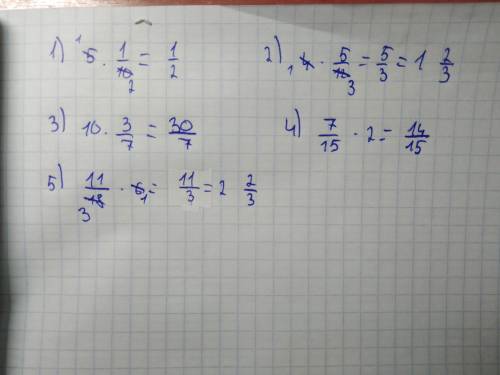 1) ¹5 · 1/10 2 = 1/2
2) 1 4 · 5/12 3 = 5/3 = 1 2/3
3) 10 · 3/7 = 30/7
4) 7/15 · 2 = 14/15
5) 11/18 3 · 6 1 = 11/3 = 2 2/3